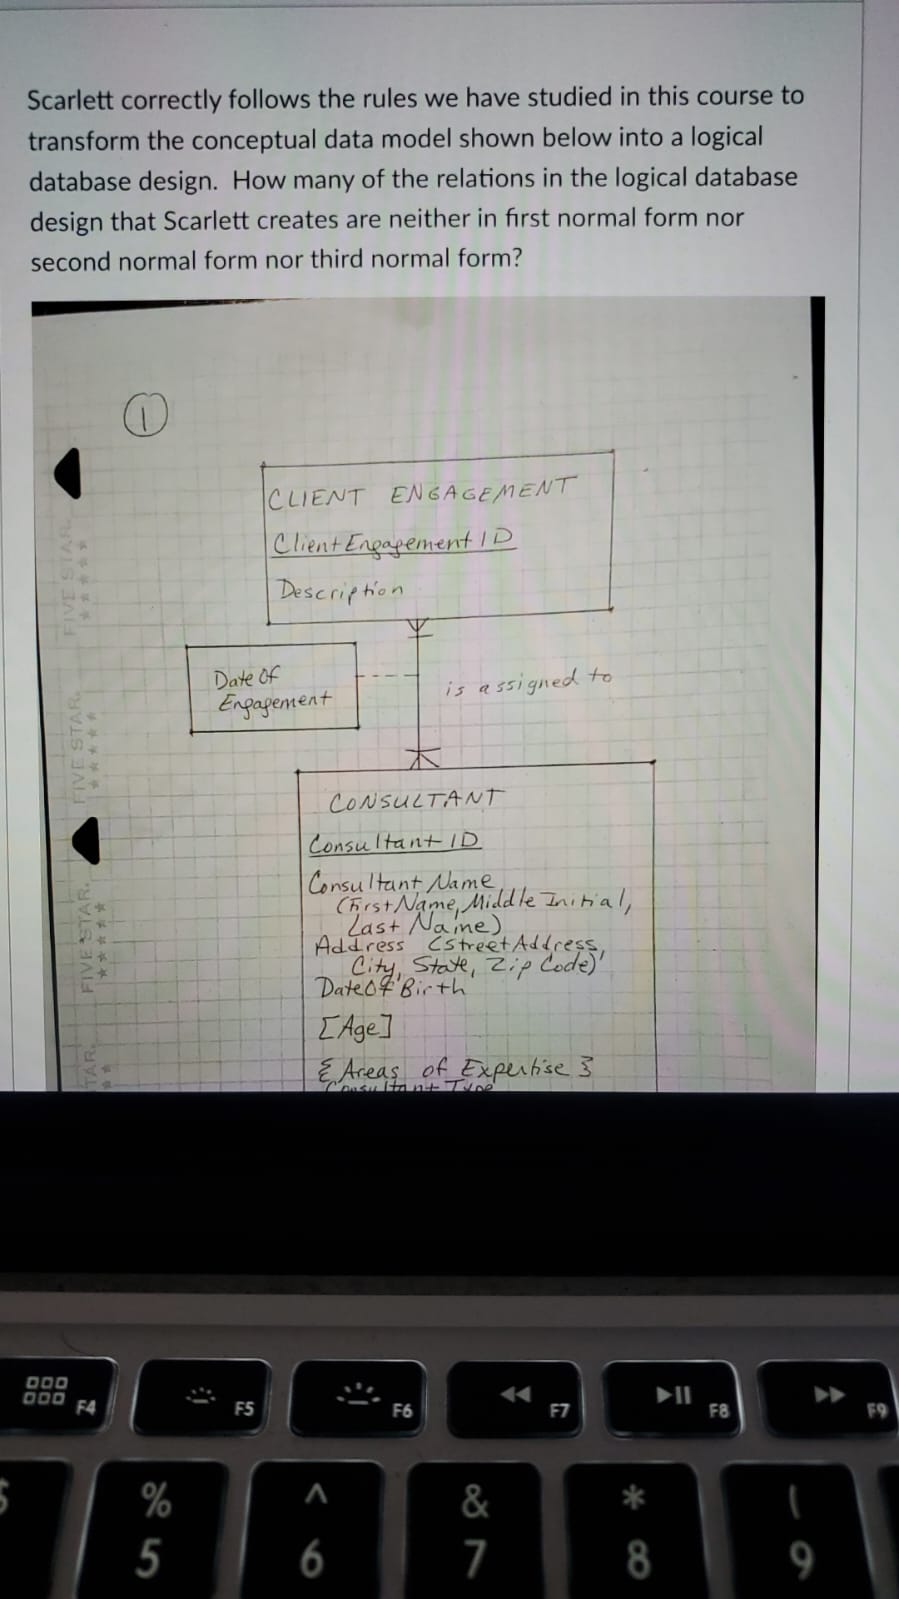 Scarlett correctly follows the rules we have studied in this course to
transform the conceptual data model shown below into a logical
database design. How many of the relations in the logical database
design that Scarlett creates are neither in first normal form nor
second normal form nor third normal form?
1
CLIENT ENGAGEMENT
Client Engagement ID
Description
Date Of
Engagement
is assigned to
CONSULTANT
Consultant ID
Consultant Name
(First Name, Middle Initial,
Last Name)
Address (Street Address,
City, State, Zip Code)
Date Of Birth
[Age]
{Areas of Expertise}
Consultant Type
FIVE STAR.
FIVE STAR.
FIVE STAR.
TAR.
F4
F5
F6
F7
F8
F9
%
5
^
6
&
7
*
8
(
9